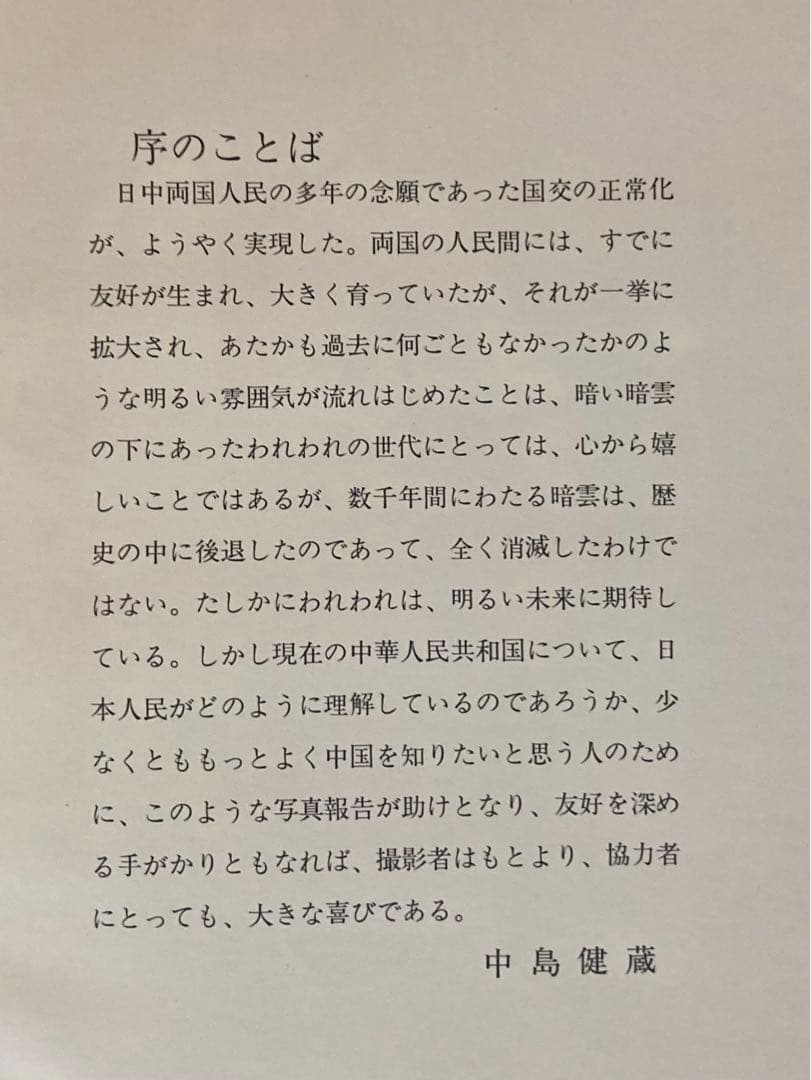 序のことば
日中両国人民の多年の念願であった国交の正常化
が、ようやく実現した。両国の人民間には、すでに
友好が生まれ、大きく育っていたが、それが一挙に
拡大され、あたかも過去に何ごともなかったかのよ
うな明るい雰囲気が流れはじめたことは、暗い暗雲
の下にあったわれわれの世代にとっては、心から嬉
しいことではあるが、数千年間にわたる暗雲は、歴
史の中に後退したのであって、全く消滅したわけで
はない。たしかにわれわれは、明るい未来に期待し
ている。しかし現在の中華人民共和国について、日
本人民がどのように理解しているのであろうか、少
なくとももっとよく中国を知りたいと思う人のため
に、このような写真報告が助けとなり、友好を深め
る手がかりともなれば、撮影者はもとより、協力者
にとっても、大きな喜びである。
中島健蔵